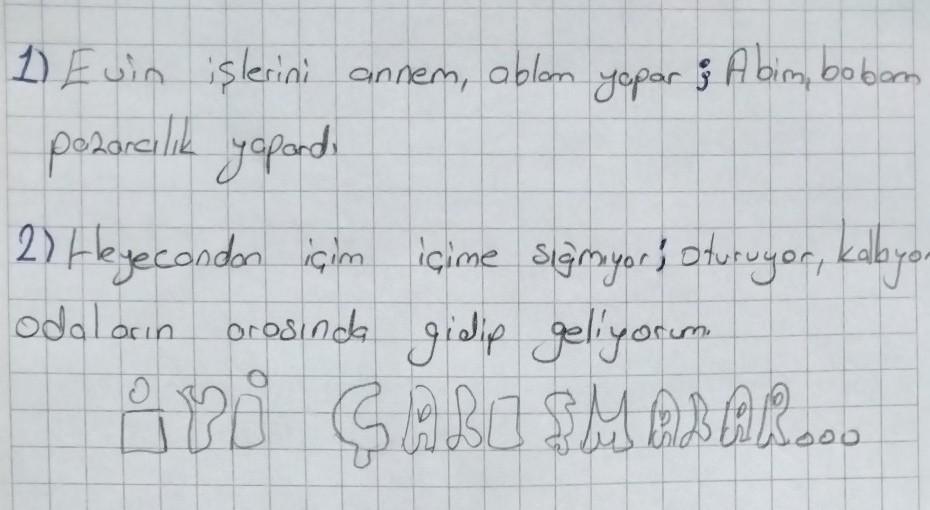 1) Evin işlerini annem, ablam yapar ; Abim, babam
pazarcılık yapardı
2) Heyecandan içim içime sığmıyor; oturuyor, kalkıyor
odaların arasında gidip geliyorum.
İYİ ÇALIŞMALAR...